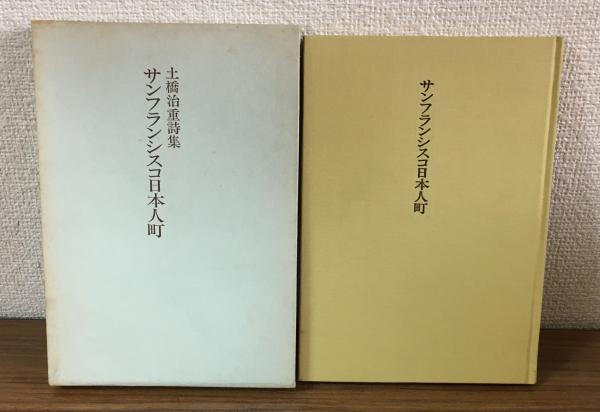 土橋治重詩集
サンフランシスコ日本人町
サンフランシスコ日本人町